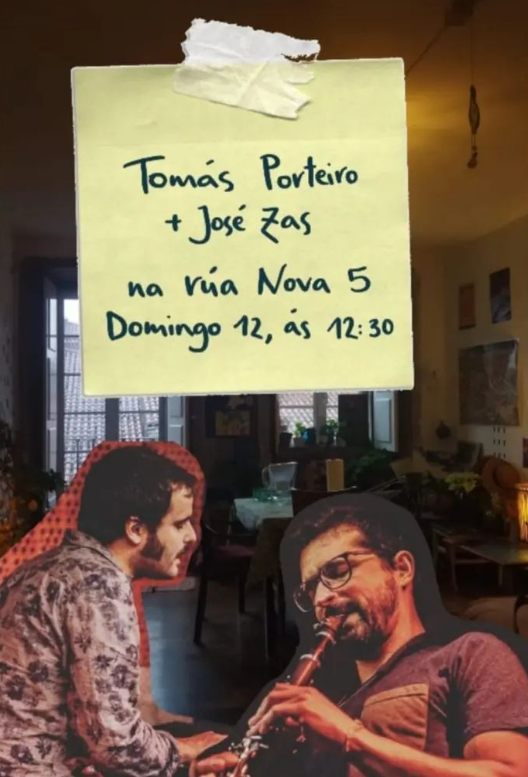 Tomás Porteiro
+ José Zas
na rúa Nova 5
Domingo 12, ás 12:30